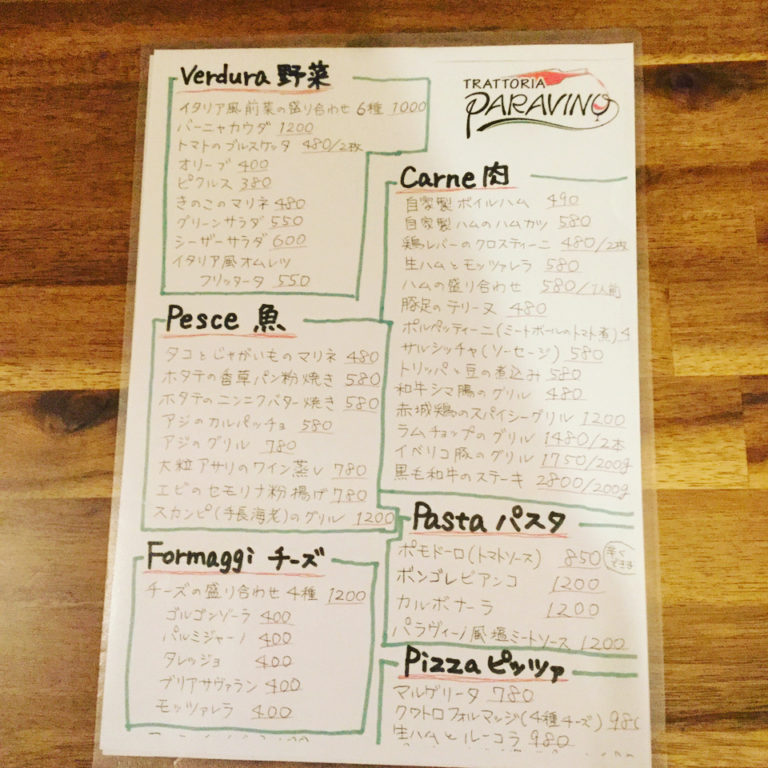 Verdura 野菜
イタリア風前菜の盛り合わせ 6種 1000
バーニャカウダ 1200
トマトのブルスケッタ 480/2枚
オリーブ 400
ピクルス 380
きのこのマリネ 480
グリーンサラダ 550
シーザーサラダ 600
イタリア風オムレツ
フリッタータ 550
Pesce 魚
タコとじゃがいものマリネ 480
ホタテの香草パン粉焼き 580
ホタテのニンニクバター焼き 580
アジのカルパッチョ 580
アジのグリル 780
大粒アサリのワイン蒸し 780
エビのセモリナ粉揚げ 780
スカンピ(手長海老)のグリル 1200
Formaggi チーズ
チーズの盛り合わせ 4種 1200
ゴルゴンゾーラ 400
パルミジャーノ 400
タレッジョ 400
ブリアサヴァラン 400
モッツァレラ 400
TRATTORIA
PARAVINO
Carne 肉
自家製ボイルハム 490
自家製ハムのハムカツ 580
鶏レバーのクロスティーニ 480/2枚
生ハムとモッツァレラ 580
ハムの盛り合わせ 580/1人前
豚足のテリーヌ 480
ポルペッティーニ(ミートボールのトマト煮) 4
サルシッチャ(ソーセージ) 580
トリッパと豆の煮込み 580
和牛シマ腸のグリル 480
赤城鶏のスパイシーグリル 1200
ラムチョップのグリル 1480/2本
イベリコ豚のグリル 1750/200g
黒毛和牛のステーキ 2800/200g
Pasta パスタ
ポモドーロ(トマトソース) 850 辛くできます
ボンゴレビアンコ 1200
カルボナーラ 1200
パラヴィーノ風塩ミートソース 1200
Pizza ピッツァ
マルゲリータ 780
クワトロフォルマッジ(4種チーズ) 980
生ハムとルーコラ 980